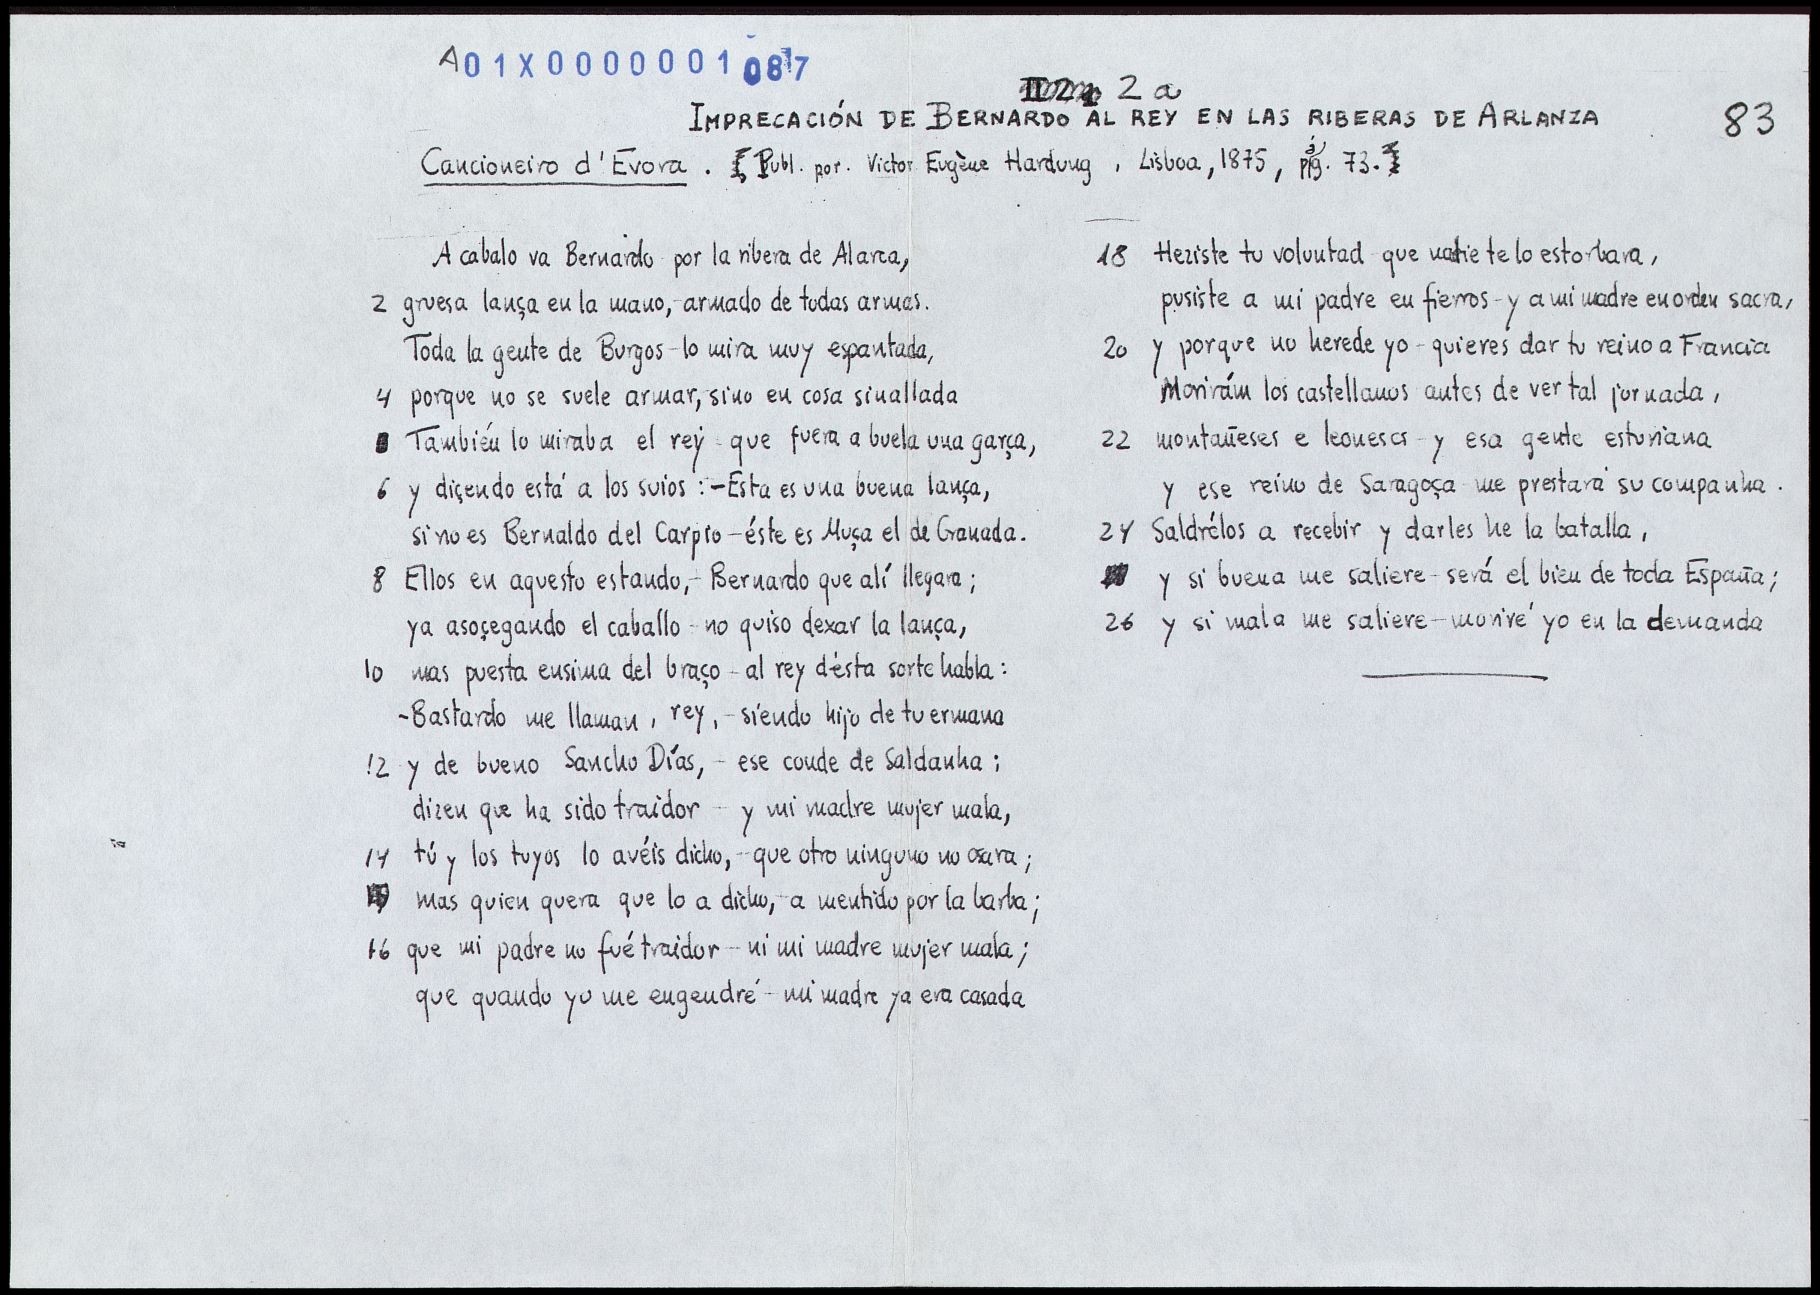 A01X0000001087
2 a
IMPRECACIÓN DE BERNARDO AL REY EN LAS RIBERAS DE ARLANZA
83
Cancioneiro d'Evora. [Publ. por. Victor Eugène Hardung, Lisboa, 1875, pág. 73.]
A cabalo va Bernardo - por la ribera de Alarça,
2 gruesa lança en la mano, - armado de todas armas.
Toda la gente de Burgos - lo mira muy espantada,
4 porque no se suele armar, sino en cosa sinallada
También lo miraba el rey - que fuera a buela una garça,
6 y diçendo está a los suios: - Esta es una buena lança,
si no es Bernaldo del Carpio - éste es Muça el de Granada.
8 Ellos en aquesto estando, - Bernardo que alí llegara;
ya asoçegando el caballo - no quiso dexar la lança,
10 mas puesta ensima del braço - al rey désta sorte habla:
- Bastardo me llaman, rey, - siendo hijo de tu ermana
12 y de bueno Sancho Días, - ese conde de Saldanha;
dizen que ha sido traidor - y mi madre mujer mala,
14 tú y los tuyos lo avéis dicho, - que otro ninguno no osara;
mas quien quera que lo a dicho, - a mentido por la barba;
16 que mi padre no fué traidor - ni mi madre mujer mala;
que quando yo me engendré - mi madre ya era casada
18 Heziste tu voluntad - que natie te lo estorbara,
pusiste a mi padre en fierros - y a mi madre en orden sacra,
20 y porque no herede yo - quieres dar tu reino a Francia
Morirám los castellanos antes de ver tal jornada,
22 montañeses e leoneses - y esa gente esturiana
y ese reino de Saragoça - me prestará su companha.
24 Saldrélos a recebir y darles he la batalla,
y si buena me saliere - será el bien de toda España;
26 y si mala me saliere - moriré yo en la demanda